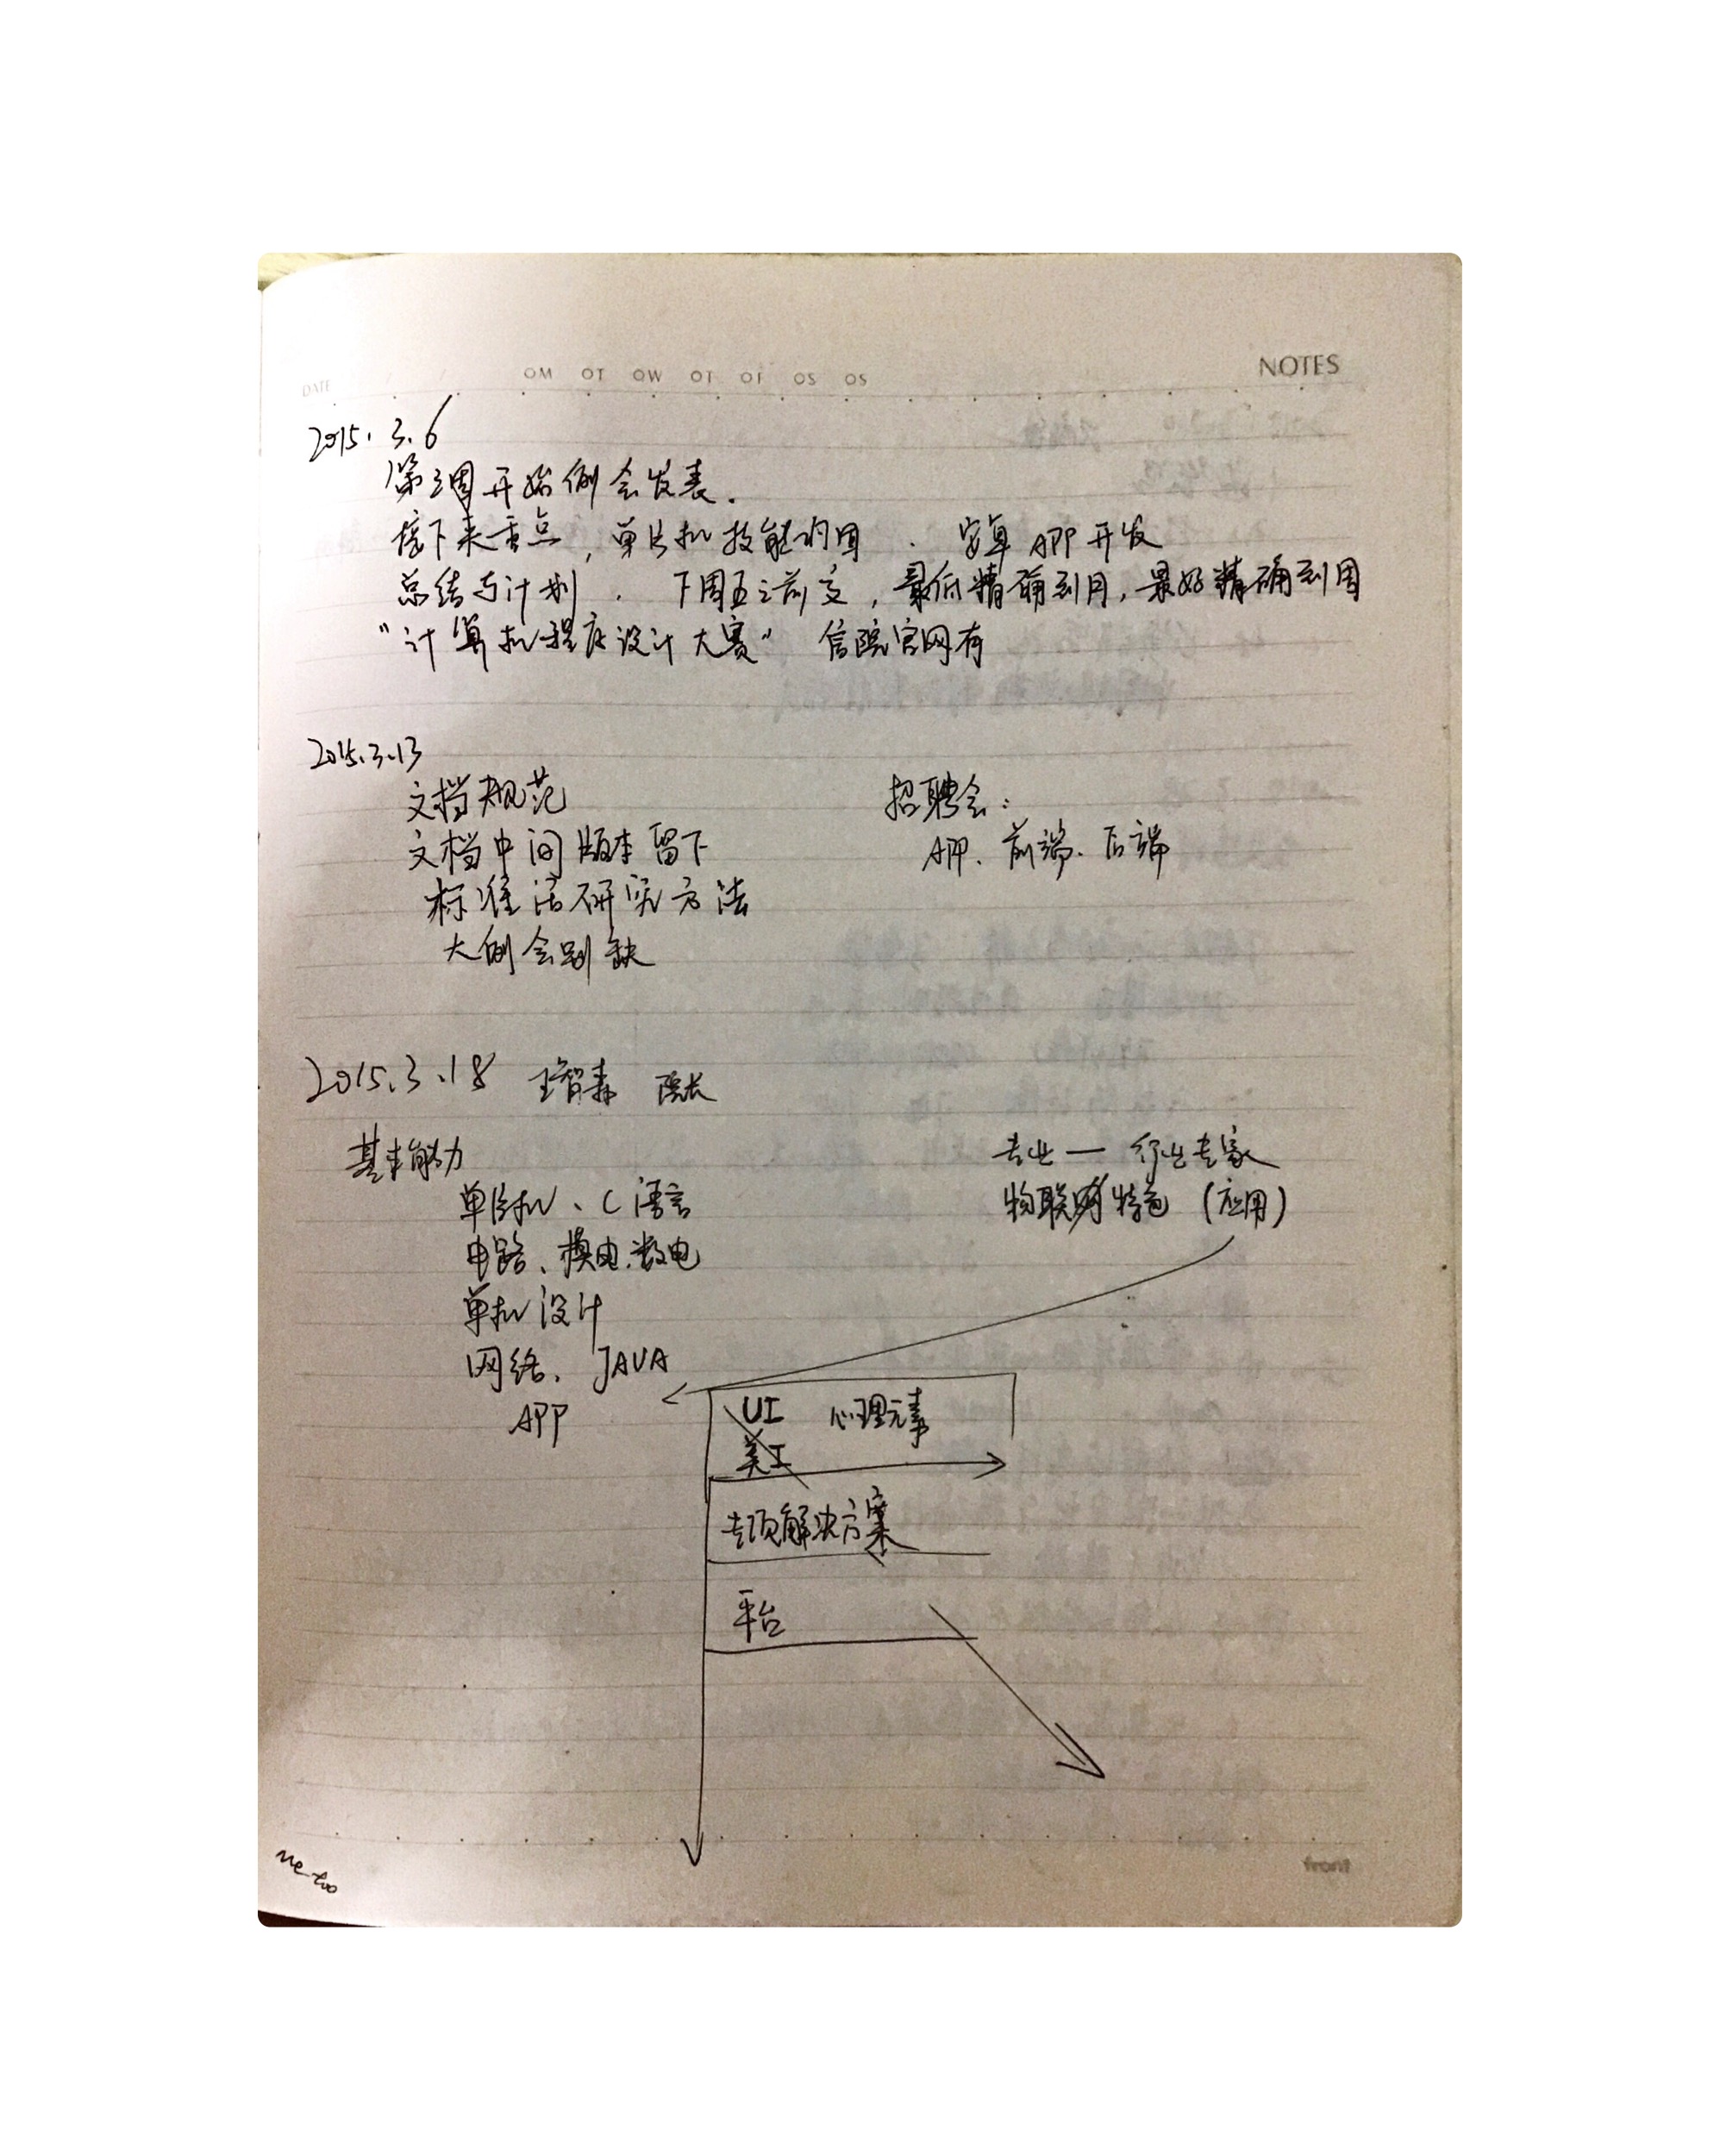 DATE
OM OT OW OT OF OS OS
NOTES
2015.3.6
第三周开始例会发表.
接下来重点, 单片机技能巩固 . 安卓APP开发
总结与计划. 下周五之前交, 最低精确到月, 最好精确到周
"计算机程序设计大赛" 信院官网有
2015.3.13
文档规范
文档中间版本留下
标准活研究方法
大例会别缺
招聘会:
APP、前端、后端
2015.3.18 王智森 院长
基本能力
单片机、C语言
电路、模电、数电
单机设计
网络、JAVA
APP
专业—行业专家
物联网特色 (应用)
UI 心理元素
美工
专项解决方案
平台
me-too
front